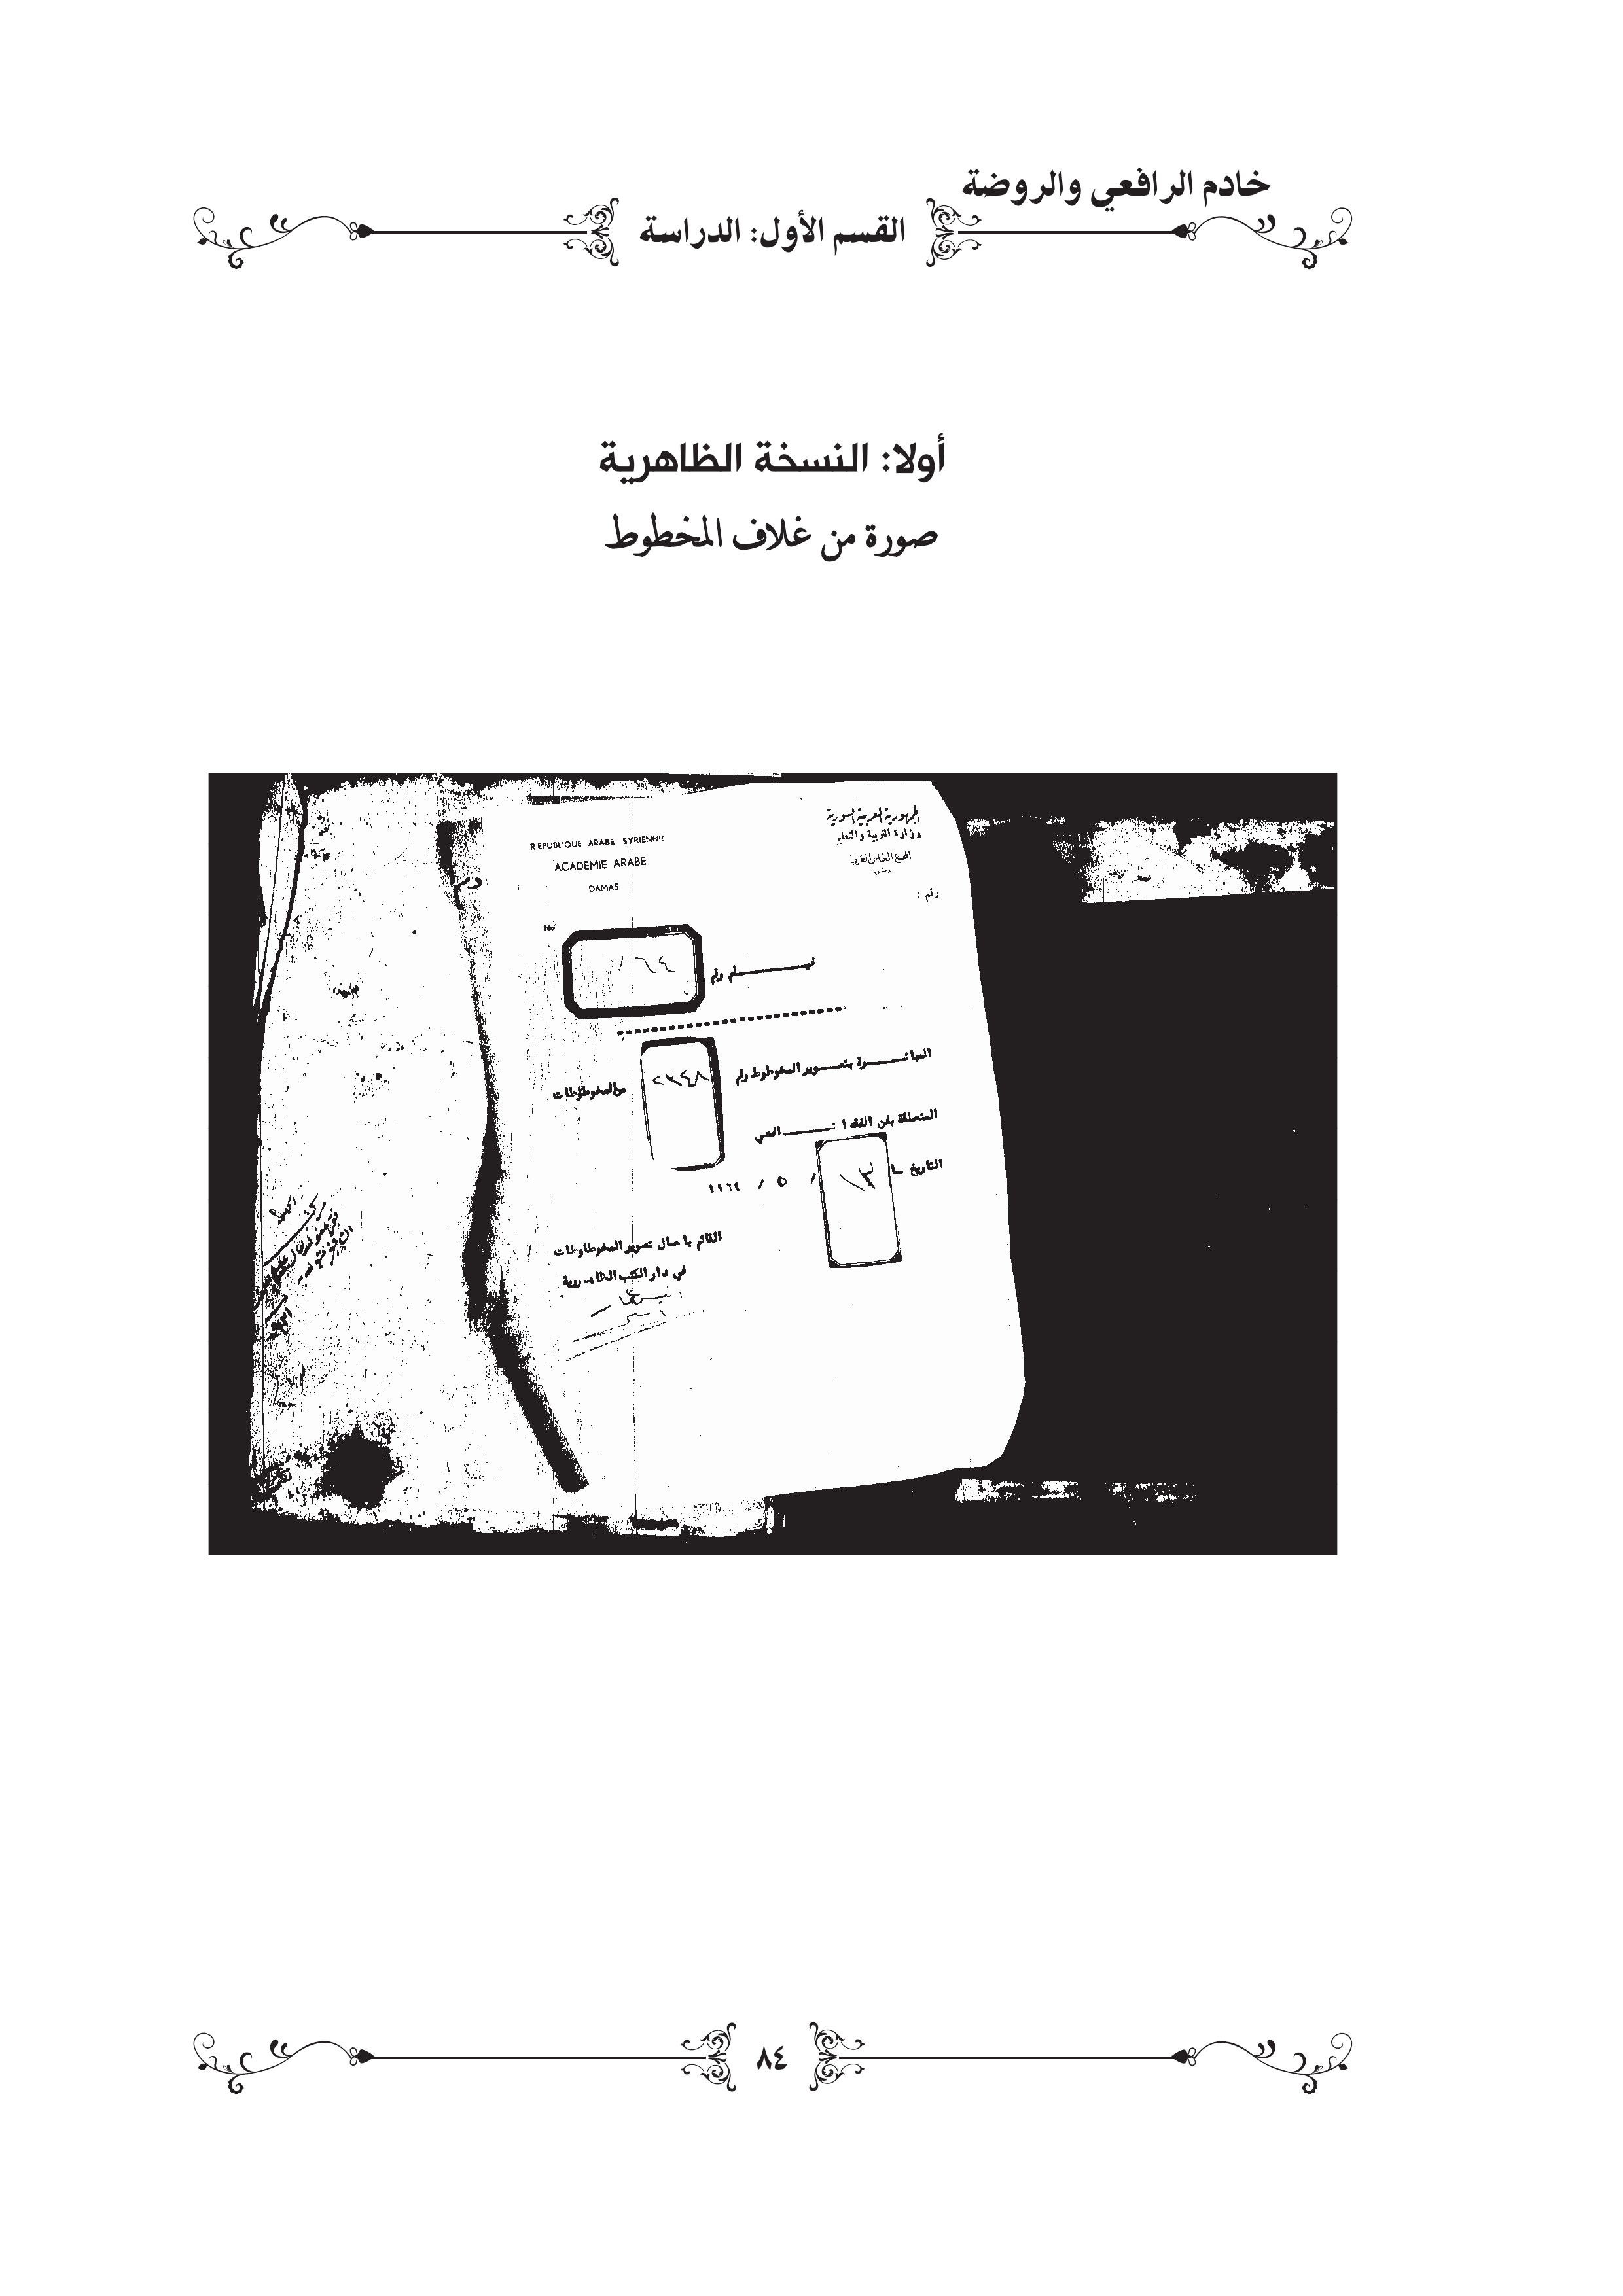 خادم الرافعي والروضة
القسم الأول: الدراسة
أولا: النسخة الظاهرية
صورة من غلاف المخطوط
الجمهورية العربية السورية
وزارة التربية والتعليم
المجمع العلمي العربي
دمشق
رقم :
REPUBLIQUE ARABE SYRIENNE
ACADEMIE ARABE
DAMAS
No
فيـــــلم رقم ٧٦٤
المباشـــرة بتصـــوير المخطوط رقم ٢٣٤٨ من المخطوطات
المتعلقة بفن الفقه الشـــافعي
التاريخ ١٣ / ٥ / ١٩٦٤
القائم باعمال تصوير المخطوطات
في دار الكتب الظاهرية
٨٤